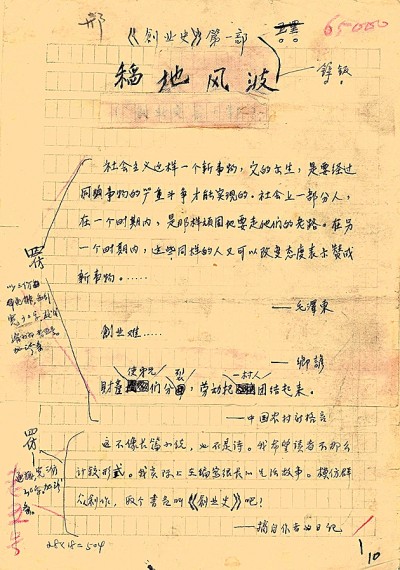 65000
《创业史》第一部
稻地风波
锌钣
社会主义这样一个新事物，它的出生，是要经过
同旧事物的严重斗争才能实现的。社会上一部分人，
在一个时期内，是那样顽固地要走他们的老路。在另
一个时期内，这些同样的人又可以改变态度表示赞成
新事物。……
——毛泽东
四仿
创业难……
——鄉諺
财产使弟兄们分裂，劳动把一村人团结起来。
——中国农村的格言
四仿
这不像长篇小说，也不是诗。我希望读者不那么
计较形式。我实际上在编写很长的生活故事。模仿群
众创作，取个书名叫《创业史》吧！
——摘自作者的日记
28×18=504
10